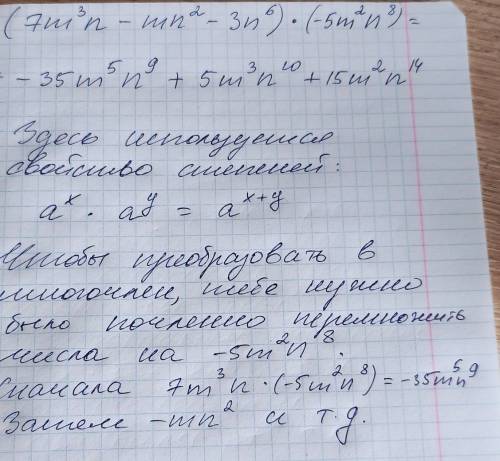 (7m³n - mn² - 3n⁶) · (-5m²n⁸) =
= -35m⁵n⁹ + 5m³n¹⁰ + 15m²n¹⁴
Здесь используется
свойство степеней:
aˣ · aʸ = aˣ⁺ʸ
Чтобы преобразовать в
многочлен, тебе нужно
было почленно перемножить
числа на -5m²n⁸.
Сначала 7m³n · (-5m²n⁸) = -35m⁵n⁹
Затем -mn² и т.д.